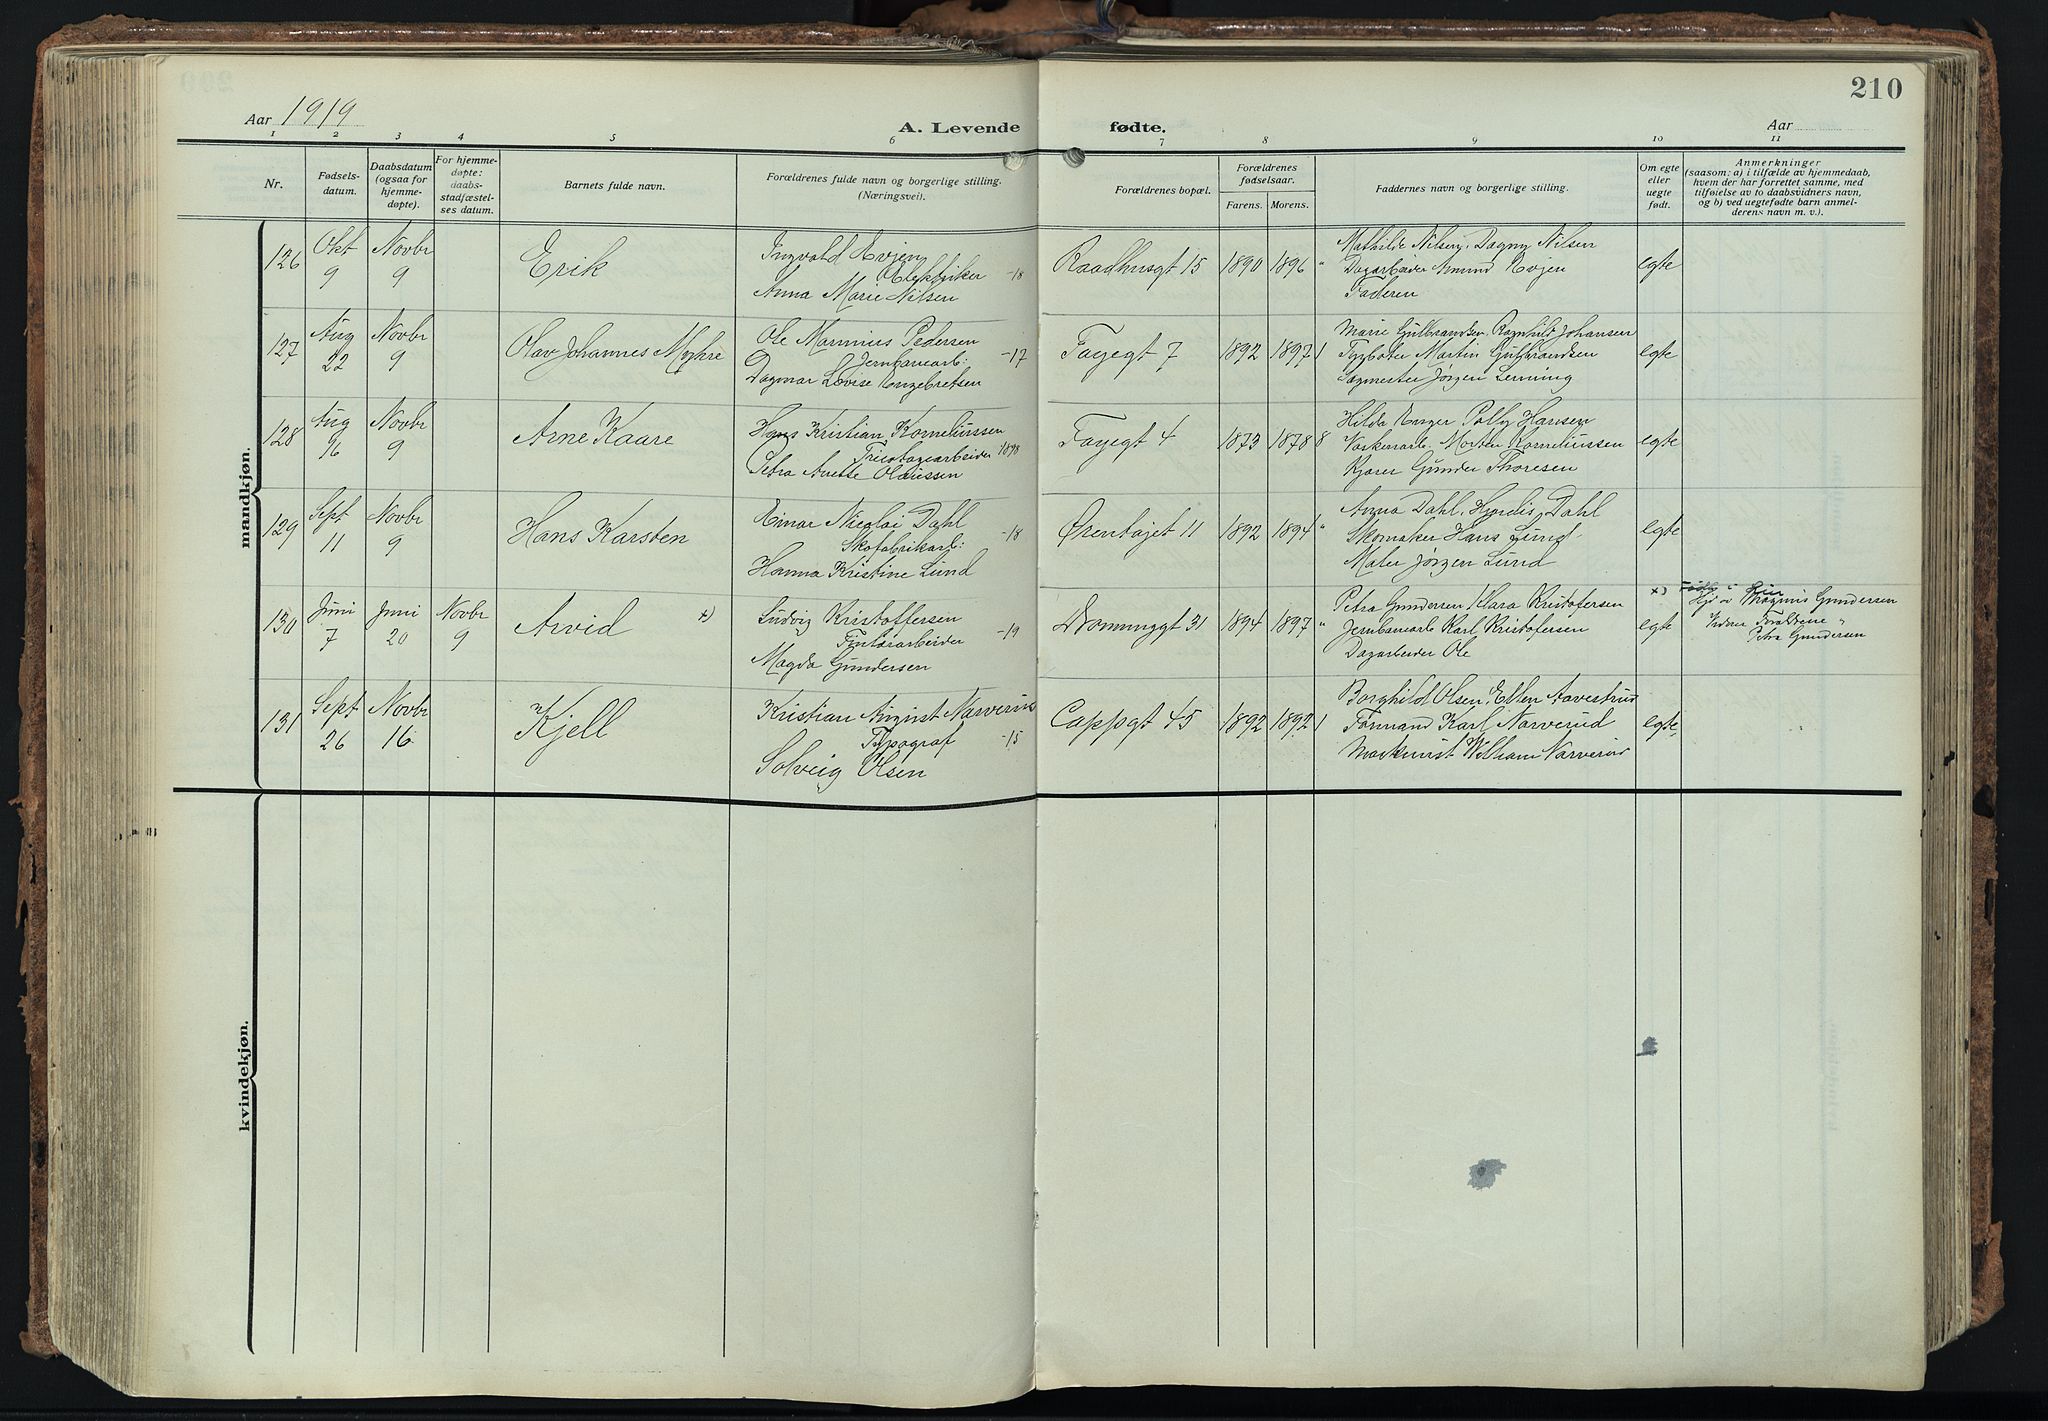 210
Aar 1919
A. Levende fødte.
Aar
1 2 3 4 5 6 7 8 9 10 11
Nr.
Fødsels-
datum.
Daabsdatum
(ogsaa for
hjemme-
døpte).
For hjemme-
døpte:
daabs-
stadfæstel-
ses datum.
Barnets fulde navn.
Forældrenes fulde navn og borgerlige stilling.
(Næringsvei).
Forældrenes bopæl.
Forældrenes
fødselsaar.
Farens. Morens.
Faddernes navn og borgerlige stilling.
Om egte
eller
uegte
født.
Anmerkninger
(saasom: a) i tilfælde av hjemmedaab,
hvem der har forrettet samme, med
tilføielse av to daabsvidners navn,
og b) ved uegtefødte barn anmel-
derens navn m. v.).
mandkjøn.
126
Okt
9
Novbr
9
Erik
Ingvald Evjen
Elektriker -18
Anna Marie Nilsen
Raadhusgt 15
1890 1896 "
Mathilde Nilsen, Dagny Nilsen
Dagarbeider Amund Evjen
Faderen
egte
127
Aug
22
Novbr
9
Olav Johannes Myhre
Ole Marinius Pedersen
Jernbanearb: -17
Dagmar Lovise Engebretsen
Fayegt 7
1892 1897 1
Marie Gulbrandsen, Ragnhild Johansen
Fyrbøter Martin Gulbrandsen
Sagmester Jørgen Lerning
egte
128
Aug
16
Novbr
9
Arne Kaare
Hans Kristian Korneliussen
Tricotagearbeider 1898
Petra Anette Olaussen
Fayegt 4
1873 1878 8
Hilda Enger Polly Hansen
Morten Korneliussen
Kjører Gunder Thoresen
egte
129
Sept
11
Novbr
9
Hans Karsten
Einar Nicolai Dahl
Skofabrikarb: -18
Hanna Kristine Lund
Ørentajet 11
1892 1894 "
Anna Dahl, Hjørdis Dahl
Skomaker Hans Lund
Maler Jørgen Lund
egte
130
Juni
7
Juni
20
Novbr
9
Arvid x)
Ludvig Kristoffersen
Kontorarbeider -19
Magda Gundersen
Dronninggt 31
1894 1897 "
Petra Gundersen Klara Kristofersen
Jernbanearb Karl Kristofersen
Dagarbeider Ole
egte
x)
Hjd av Magnus Gundersen
Vidner Forældrene "
Petra Gundersen
131
Sept
26
Novbr
16
Kjell
Kristian August Narverud
Typograf -15
Solveig Olsen
Cappsgt 45
1892 1892 1
Borghild Olsen, Ellen Aavestrud
Formand Karl Narverud
Maskinist William Narverud
egte
kvindekjøn.